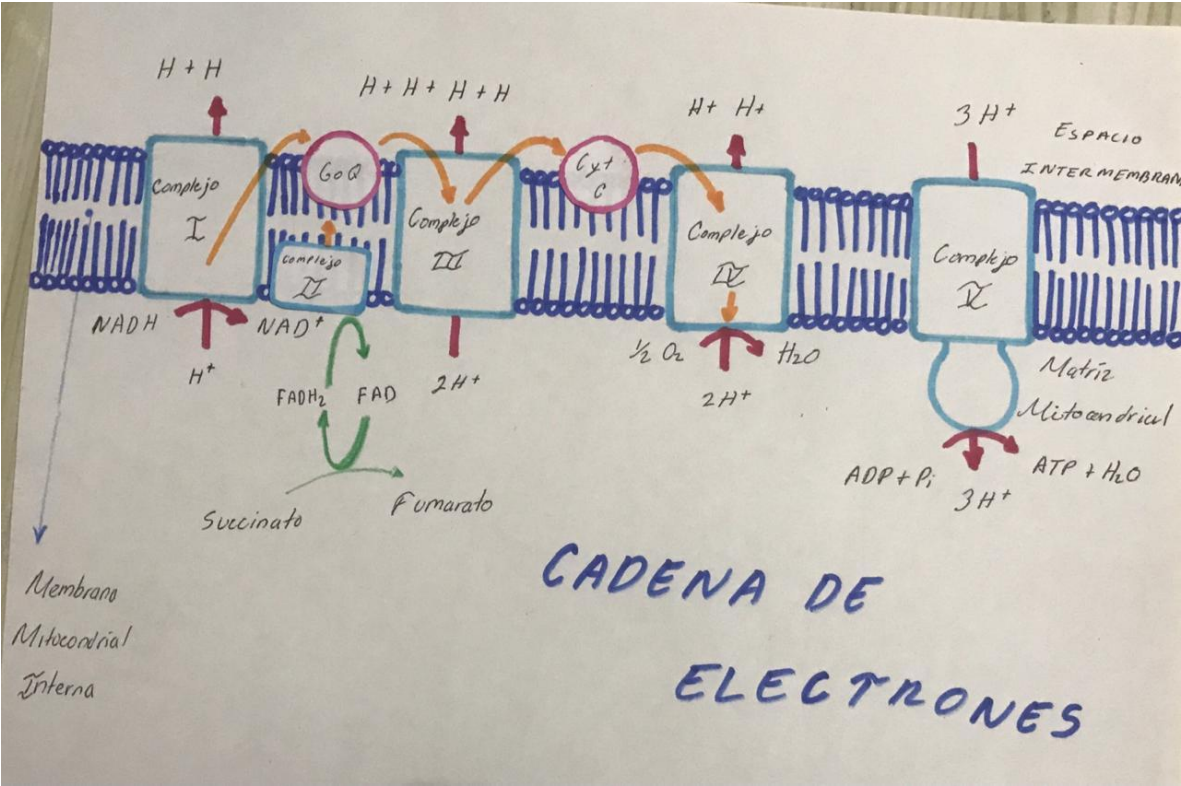 H + H
H + H + H + H
H+ H+
3H+
ESPACIO
INTERMEMBRAN
Complejo
I
GoQ
Complejo
II
Complejo
III
Cyt
C
Complejo
IV
Complejo
V
NADH
NAD+
H+
FADH2
FAD
2H+
½ O2
H2O
2H+
Matríz
Mitocondrial
ADP + Pi
ATP + H2O
3H+
Succinato
Fumarato
Membrana
Mitocondrial
Interna
CADENA DE
ELECTRONES